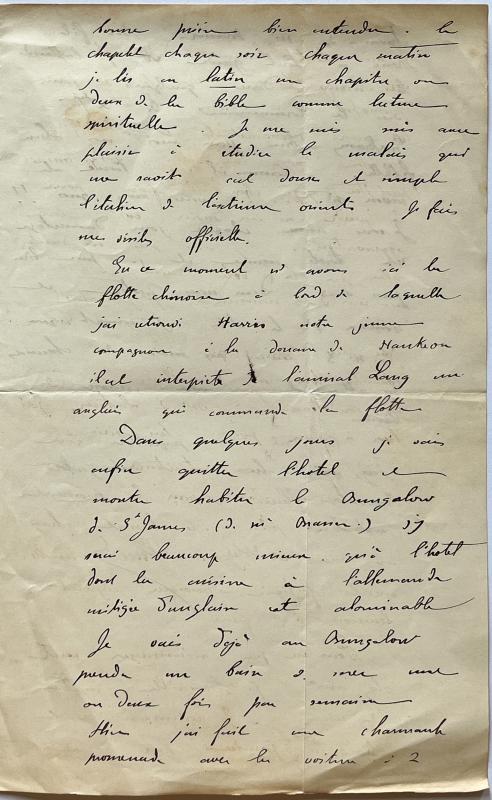 bonne prière bien entendu. le
chapelet chaque soir chaque matin
je lis en latin un chapitre ou
deux de la bible comme lecture
spirituelle. Je me suis mis avec
plaisir à étudier le malais qui
me ravit c'est doux et simple
l'italien de l'extrême orient Je fais
mes visites officielles.
En ce moment ns avons ici la
flotte chinoise à bord de laquelle
j'ai retrouvé Harris notre jeune
compagnon à la douane de Hankeou
il est interprète de l'amiral Lang un
anglais qui commande la flotte
Dans quelques jours je vais
enfin quitter l'hôtel et
monter habiter le Bungalow
de St James (de Mr Brasser.) j'y
serai beaucoup mieux qu'à l'hôtel
dont la cuisine à l'allemande
mitigée d'anglaise est abominable
Je vais déjà au Bungalow
prendre un bain de mer une
ou deux fois par semaine
Hier j'ai fait une charmante
promenade avec la voiture à 2